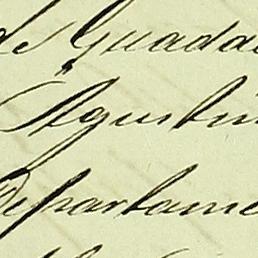 de Guada
Agustin
Departame